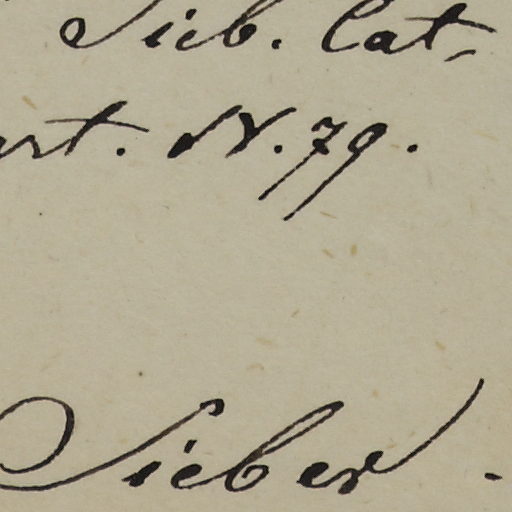 Sieb. Cat.
art. N. 79.
Sieber.